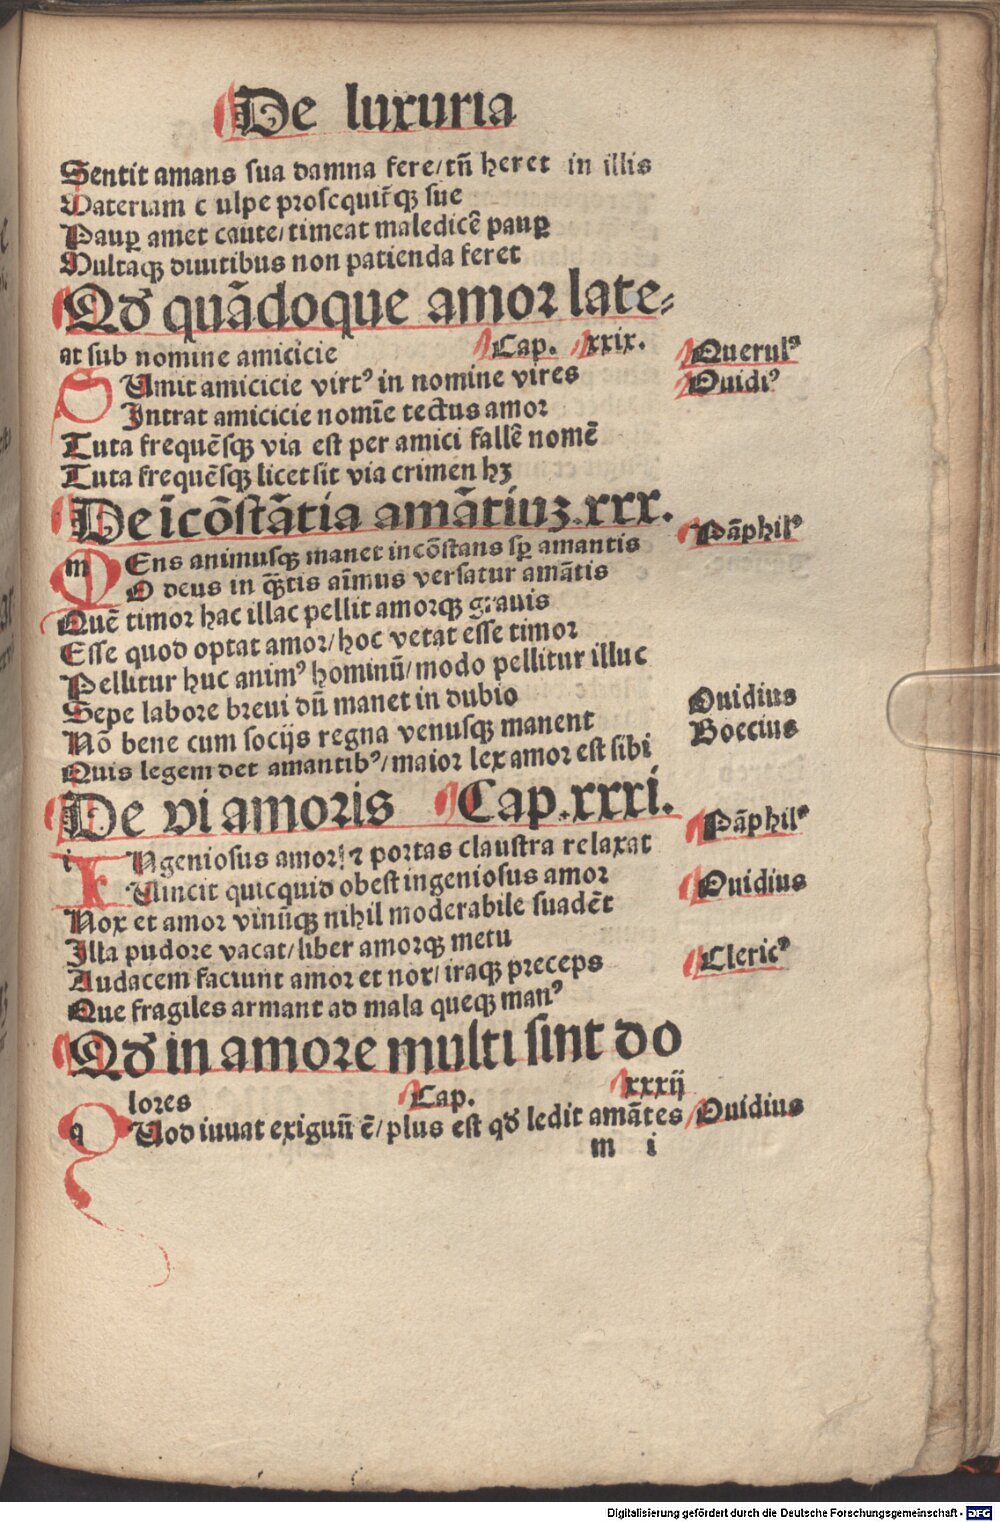 De luxuria
Sentit amans sua damna fere/tñ heret in illis
Materiam c ulpe prosequit̃qꝫ sue
Paup̲ amet caute/timeat maledicẽ paup̲
Multaqꝫ diuitibus non patienda feret
Qđ quãdoque amor late⸗
at sub nomine amicicie Cap. xxix. Querulꝰ
SUmit amicicie virtꝰ in nomine vires Ouidiꝰ
Intrat amicicie nomĩe tectus amor
Tuta frequẽsqꝫ via est per amici fallẽ nomẽ
Tuta frequẽsqꝫ licet sit via crimen hꝫ
De ĩcõstãtia amãtiuꝫ.xxx.
MEns animusqꝫ manet incõstans sp̱ amantis Pãphilꝰ
O deus in q̃tis aĩmus versatur amãtis
Quẽ timor hac illac pellit amorqꝫ grauis
Esse quod optat amor/hoc vetat esse timor
Pellitur huc animꝰ hominũ/modo pellitur illuc
Sepe labore breui dũ manet in dubio
Nõ bene cum socijs regna venusqꝫ manent Ouidius
Quis legem det amantibꝰ/maior lex amor est sibi Boecius
De vi amoris Cap.xxxi.
INgeniosus amor! ⁊ portas claustra relaxat Pãphilꝰ
Uincit quicquid obest ingeniosus amor
Nox et amor vinũqꝫ nihil moderabile suadẽt Ouidius
Illa pudore vacat/liber amorqꝫ metu
Audacem faciunt amor et nox/iraqꝫ preceps Clericꝰ
Que fragiles armant ad mala queqꝫ manꝰ
Qđ in amore multi sint do
lores Cap. xxxij
QUod iuuat exiguũ ẽ/plus est qđ ledit amãtes Ouidius
m i
Digitalisierung gefördert durch die Deutsche Forschungsgemeinschaft - DFG